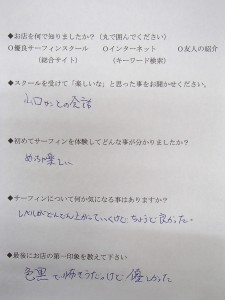 ◆お店を何で知りましたか？（丸で囲んでください）
○優良サーフィンスクール　○インターネット　○友人の紹介
（総合サイト）　（キーワード検索）
◆スクールを受けて「楽しいな」と思った事をお聞かせください。
との会話
◆初めてサーフィンを体験してどんな事が分かりましたか？
めっちゃ楽しい
◆サーフィンについて何か気になる事はありますか？
レベルがどんどん上がっていくけど、ちょうど良かった。
◆最後にお店の第一印象を教えて下さい
色黒で怖そうだったけど優しかった